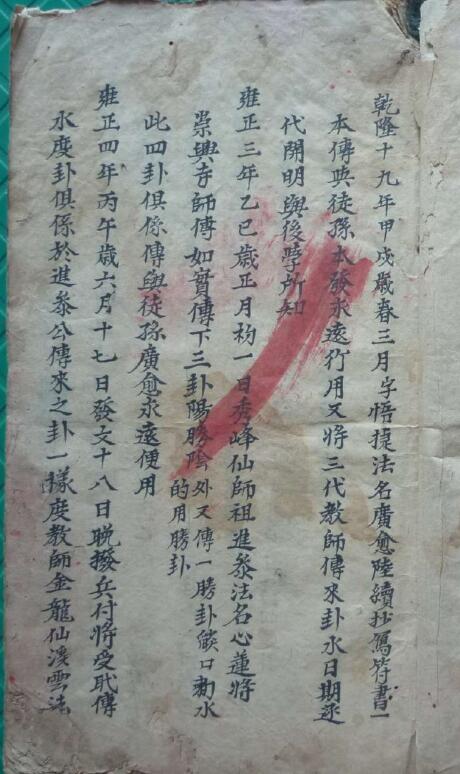 乾隆十九年甲戌歲春三月字悟捷法名廣愈陸續抄寫符書一
本傳與徒孫本發永遠行用又將三代教師傳來卦水日期逐
代開明與後學所知
雍正三年乙巳歲正月初一日秀峰仙師祖進參法名心蓮將
崇興寺師傳如實傳下三卦陽勝陰处又傳一勝卦餤口勅水
的用勝卦
此四卦俱係傳與徒孫廣愈永遠便用
雍正四年丙午歲六月十七日發文十八日晚撥兵付將受職傳
水度卦俱係於進參公傳來之卦一樣度教師金龍仙溪雲法